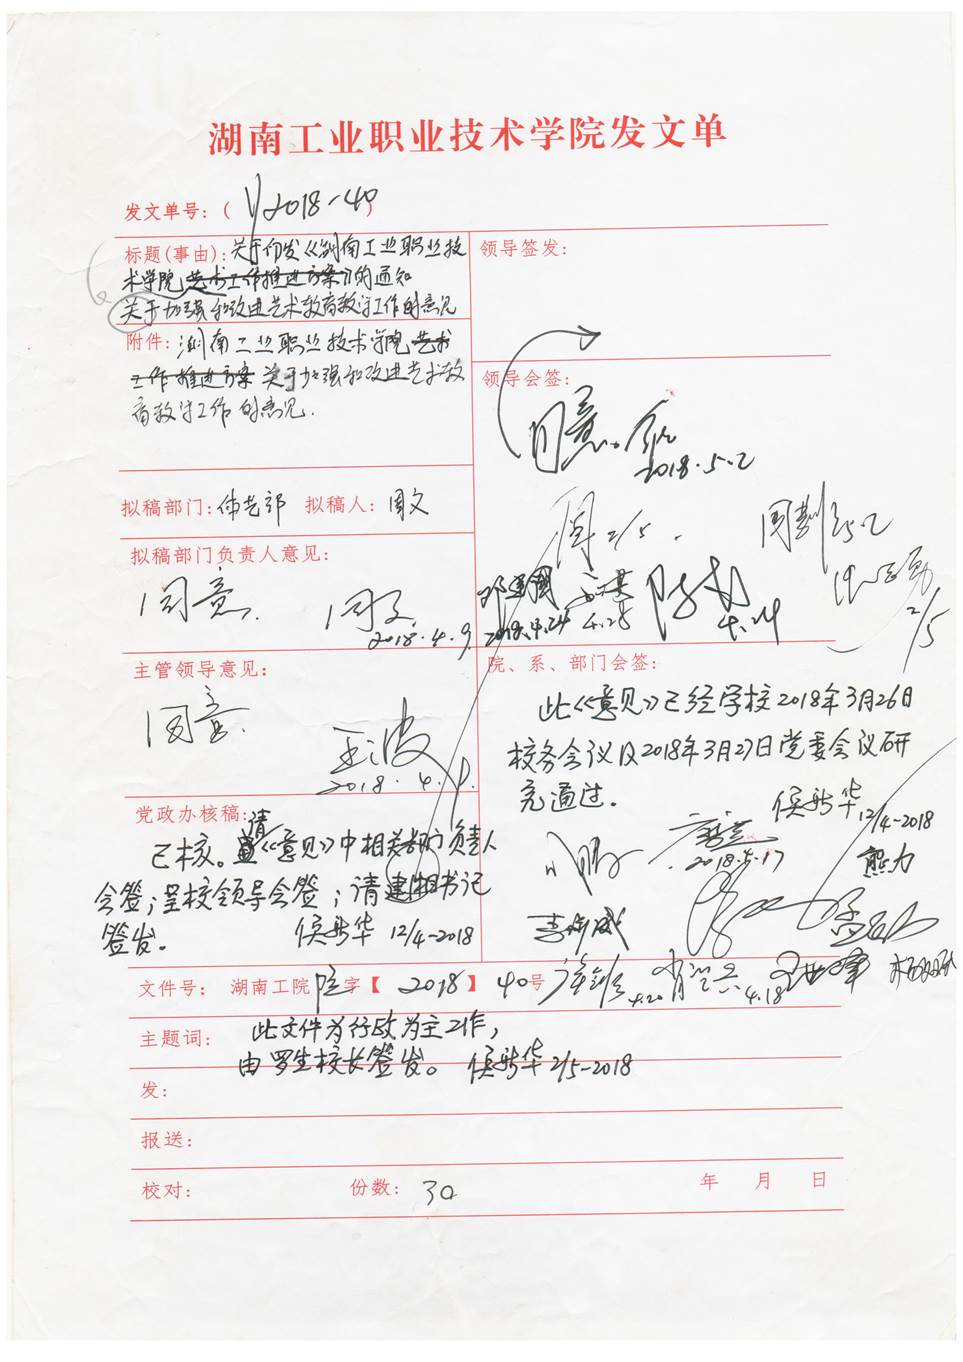 湖南工业职业技术学院发文单
发文单号：( 2018-40 )
标题(事由)：关于印发《湖南工业职业技
术学院艺术工作推进方案》的通知
关于加强和改进艺术教育教学工作的意见
附件：湖南工业职业技术学院艺术
工作推进方案 关于加强和改进艺术教
育教学工作的意见.
拟稿部门：体艺部 拟稿人：周文
拟稿部门负责人意见：
同意. 周文
2018.4.9
主管领导意见：
同意
王波
2018.4.
党政办核稿：
已核。请《意见》中相关部门负责人
会签；呈校领导会签；请建湘书记
签发。 侯新华 12/4-2018
领导签发：
领导会签：
同意.
2018.5.2
周 2/5.
邓建国
2018.4.24
4.25
4.24
2/5
院、系、部门会签：
此《意见》已经学校2018年3月26日
校务会议及2018年3月27日党委会议研
究通过。
侯新华
12/4-2018
熊力
4.20
4.18
文件号： 湖南工院院字【 2018 】 40号
主题词： 此文件为行政为主工作，
由罗生校长签发。 侯新华 2/5-2018
发：
报送：
校对： 份数：30 年 月 日